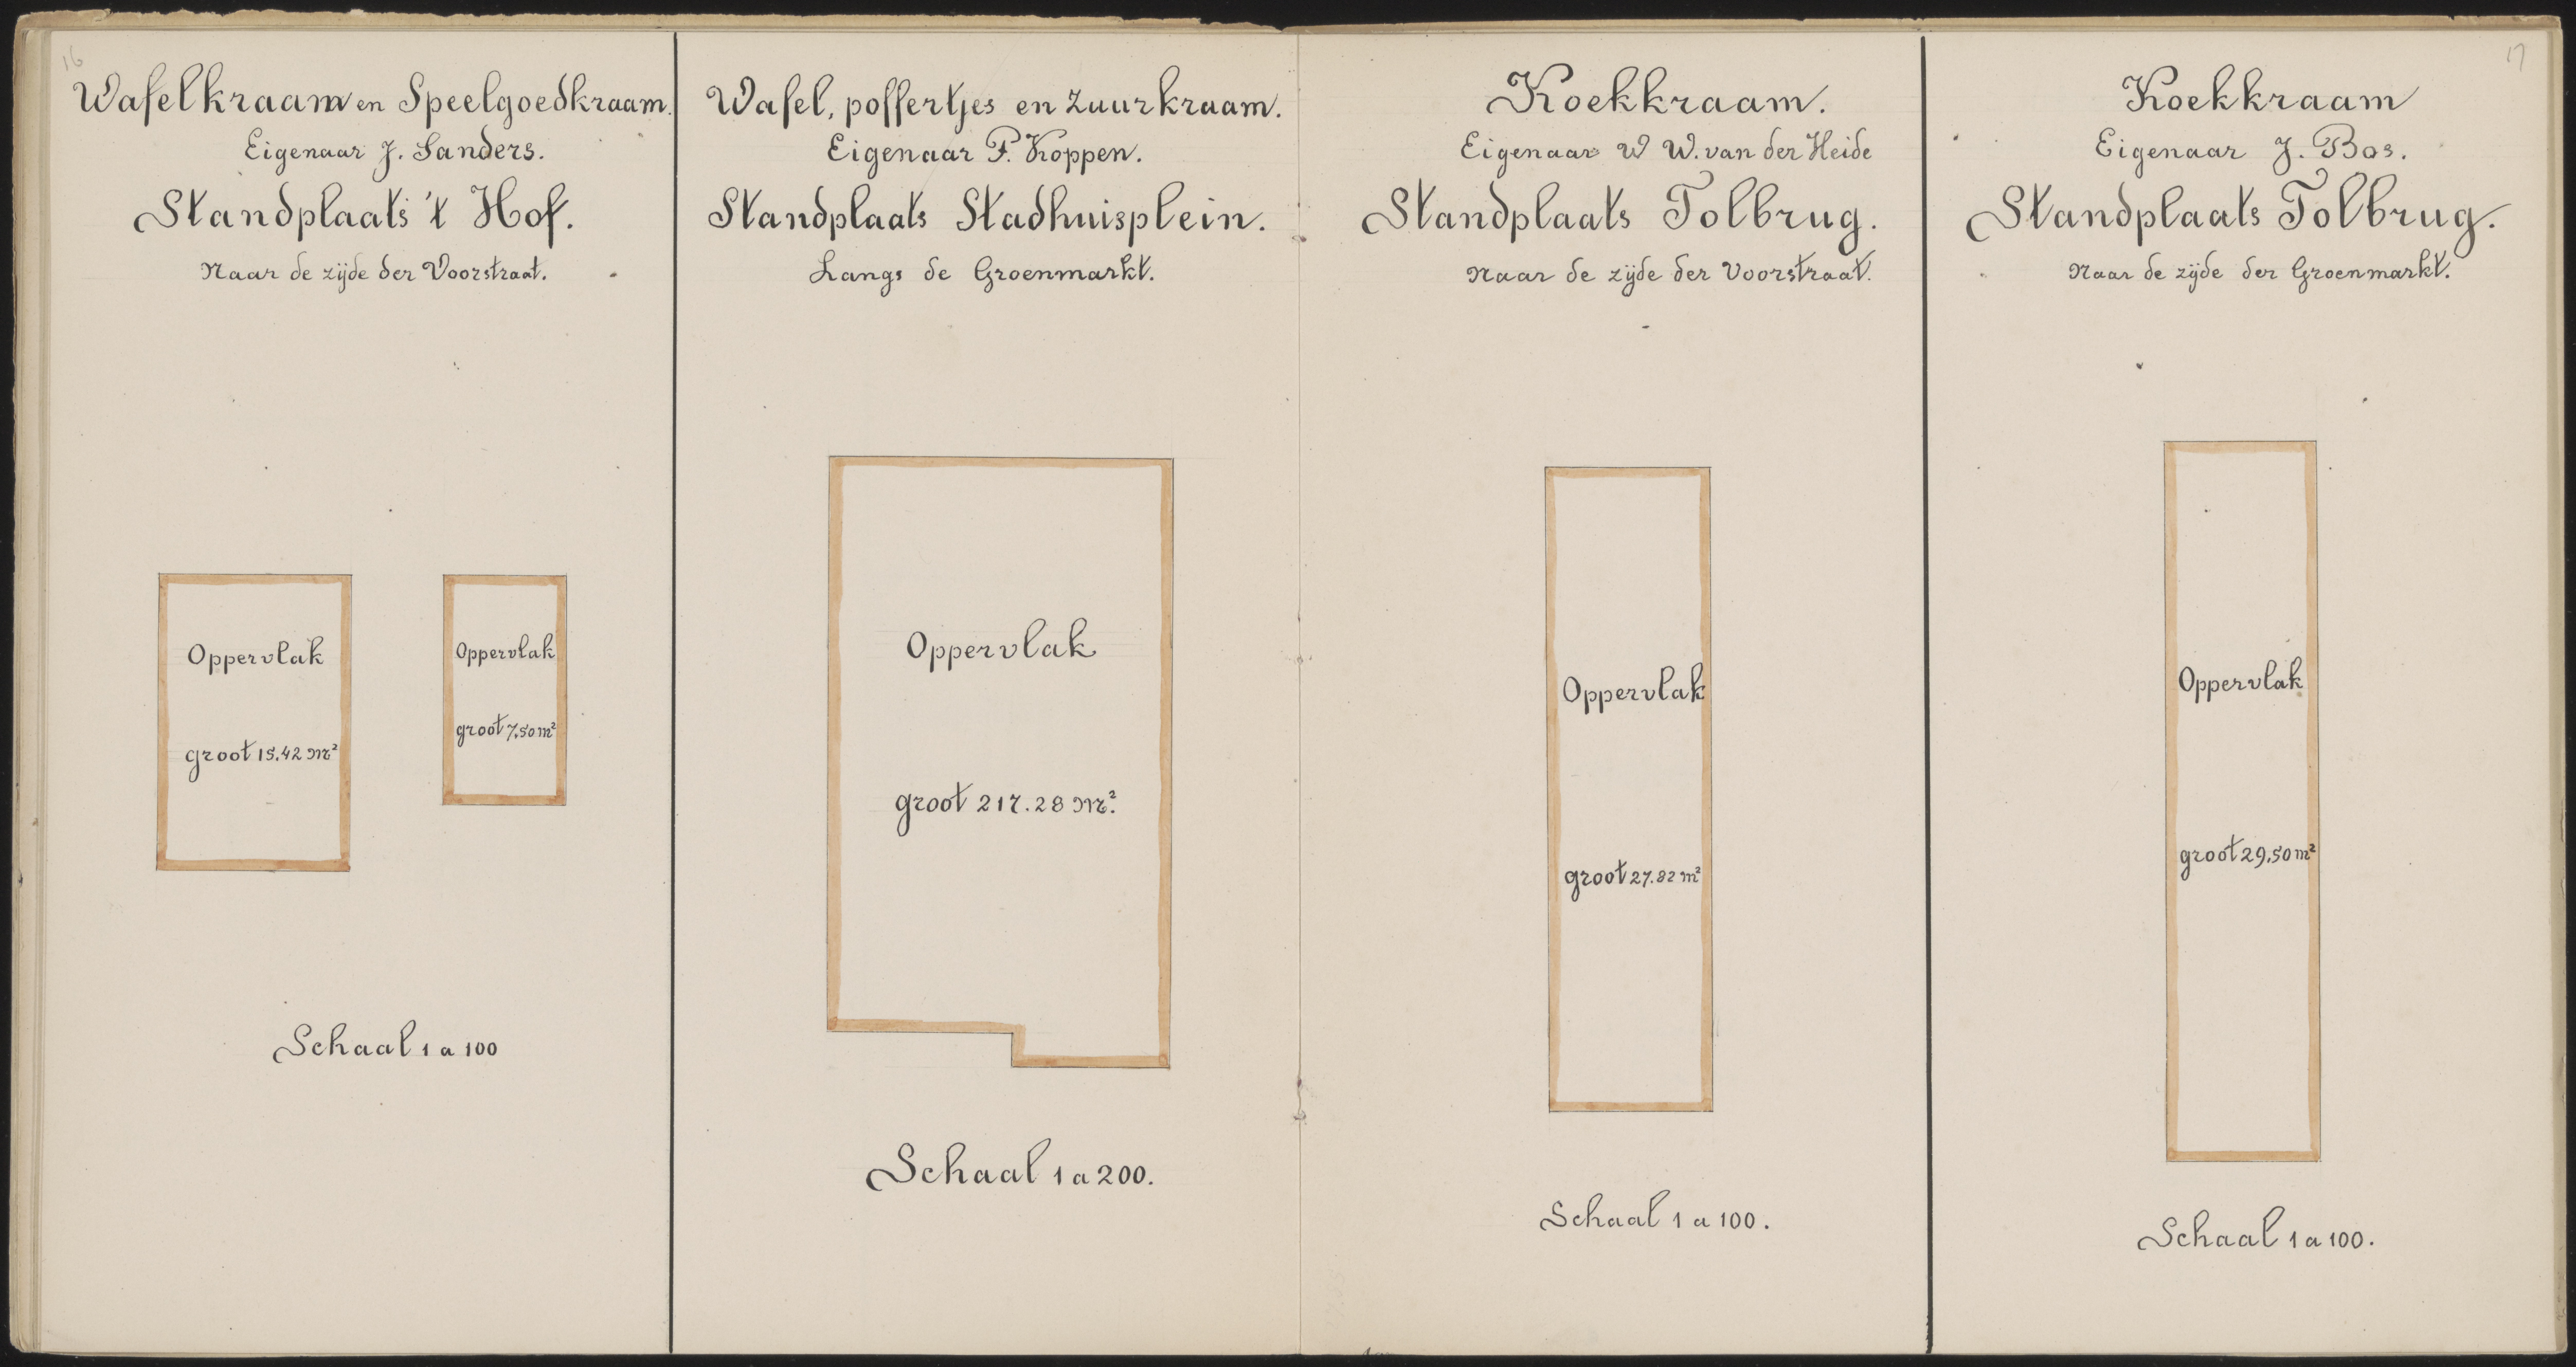 16
Wafelkraam en Speelgoedkraam.
Eigenaar J. Sanders.
Standplaats 't Hof.
Naar de zijde der Voorstraat.
Oppervlak
groot 15.42 M²
Oppervlak
groot 7,50 m²
Schaal 1 a 100
Wafel, poffertjes en Zuurkraam.
Eigenaar P. Koppen.
Standplaats Stadhuisplein.
Langs de Groenmarkt.
Oppervlak
groot 217.28 M².
Schaal 1 a 200.
Koekkraam.
Eigenaar W W. van der Heide
Standplaats Tolbrug.
Naar de zijde der Voorstraat.
Oppervlak
groot 27.82 m²
Schaal 1 a 100.
17
Koekkraam
Eigenaar J. Bos.
Standplaats Tolbrug.
Naar de zijde der Groenmarkt.
Oppervlak
groot 29,50 m²
Schaal 1 a 100.